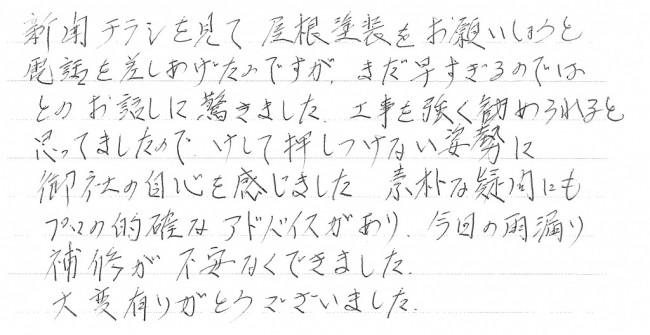 新聞チラシを見て屋根塗装をお願いしようと
電話を差しあげたのですが、まだ早すぎるのでは
とのお話しに驚きました。工事を強く勧められると
思ってましたので、けして押しつけない姿勢に
御社の自心を感じました 素朴な疑問にも
プロの的確なアドバイスがあり、今回の雨漏り
補修が不安なくできました。
大変有りがとうございました。